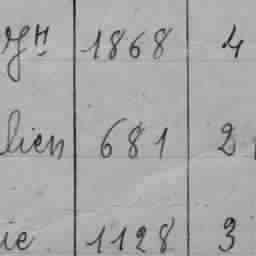 gн 1868 4
lien 681 2
ie 1128 3